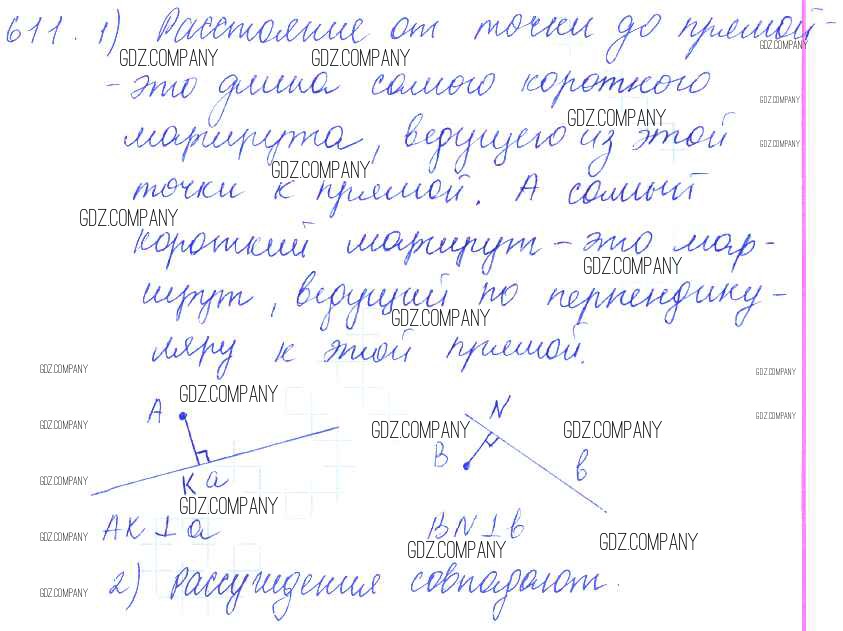 611. 1) Расстояние от точки до прямой-
GDZ.COMPANY GDZ.COMPANY GDZ.COMPANY
- это длина самого короткого
GDZ.COMPANY
GDZ.COMPANY
маршрута, ведущего из этой
GDZ.COMPANY
GDZ.COMPANY
точки к прямой. А самый
GDZ.COMPANY
короткий маршрут - это мар-
GDZ.COMPANY
шрут, ведущий по перпендику-
GDZ.COMPANY
ляру к этой прямой.
GDZ.COMPANY GDZ.COMPANY
GDZ.COMPANY
A N
GDZ.COMPANY
GDZ.COMPANY GDZ.COMPANY GDZ.COMPANY
B в
K a
GDZ.COMPANY
GDZ.COMPANY
AK ⊥ a BN ⊥ в
GDZ.COMPANY GDZ.COMPANY GDZ.COMPANY
2) Рассуждения совпадают.
GDZ.COMPANY